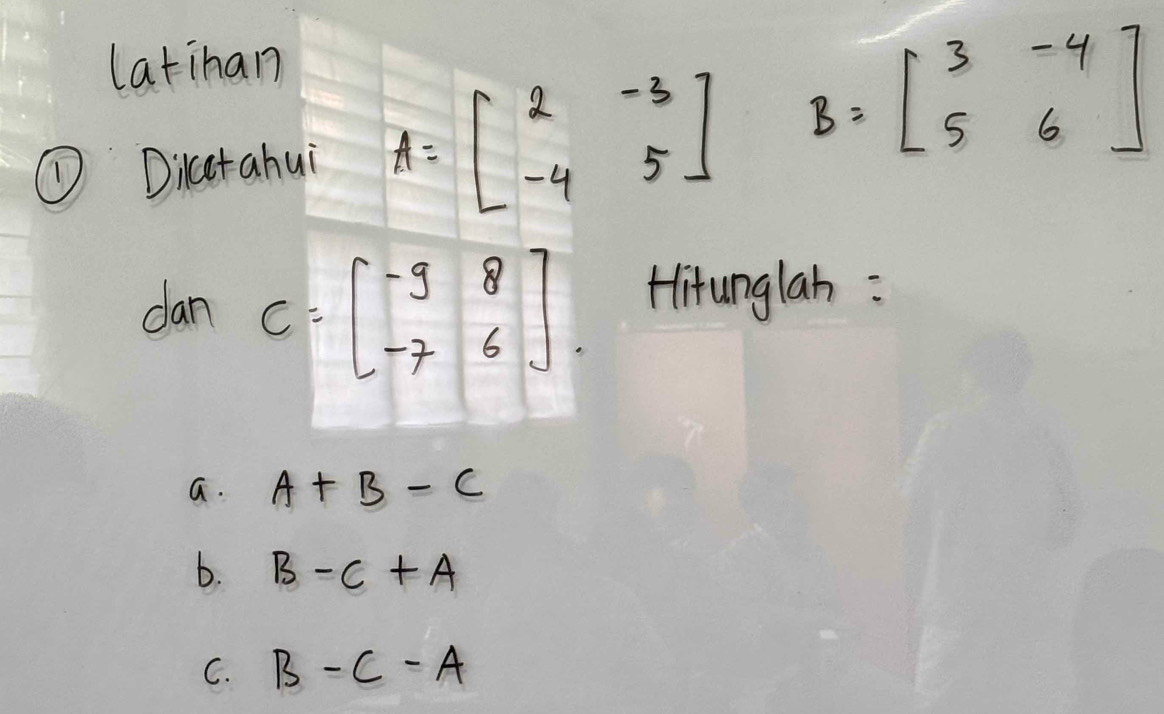 Latihan
① Diketahui A = [ 2 -3 ; -4 5 ] B = [ 3 -4 ; 5 6 ]
dan C = [ -9 8 ; -7 6 ] . Hitunglah :
a. A + B - C
b. B - C + A
c. B - C - A